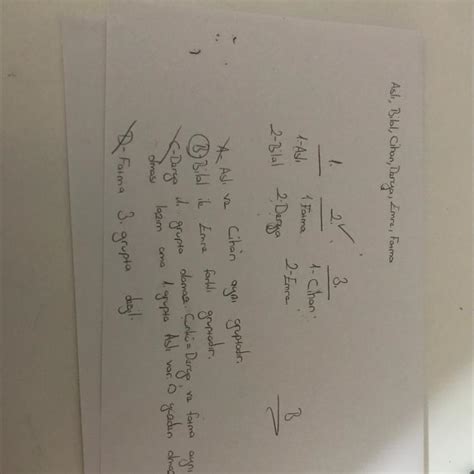 Aslı, Bilal, Cihan, Derya, Emre, Fatma
1. 2. 3.
1-Aslı 1.Fatma 1-Cihan
2-Bilal 2.Derya 2-Emre
B
A- Aslı ve Cihan aynı gruptadır.
B) Bilal ile Emre farklı gruptadır.
C-Derya 1. grupta olamaz. Çünkü= Derya ve fatma aynı
olması lazım ama 1. grupta Aslı var. O yüzden olmaz
D- Fatma 3. grupta değil.